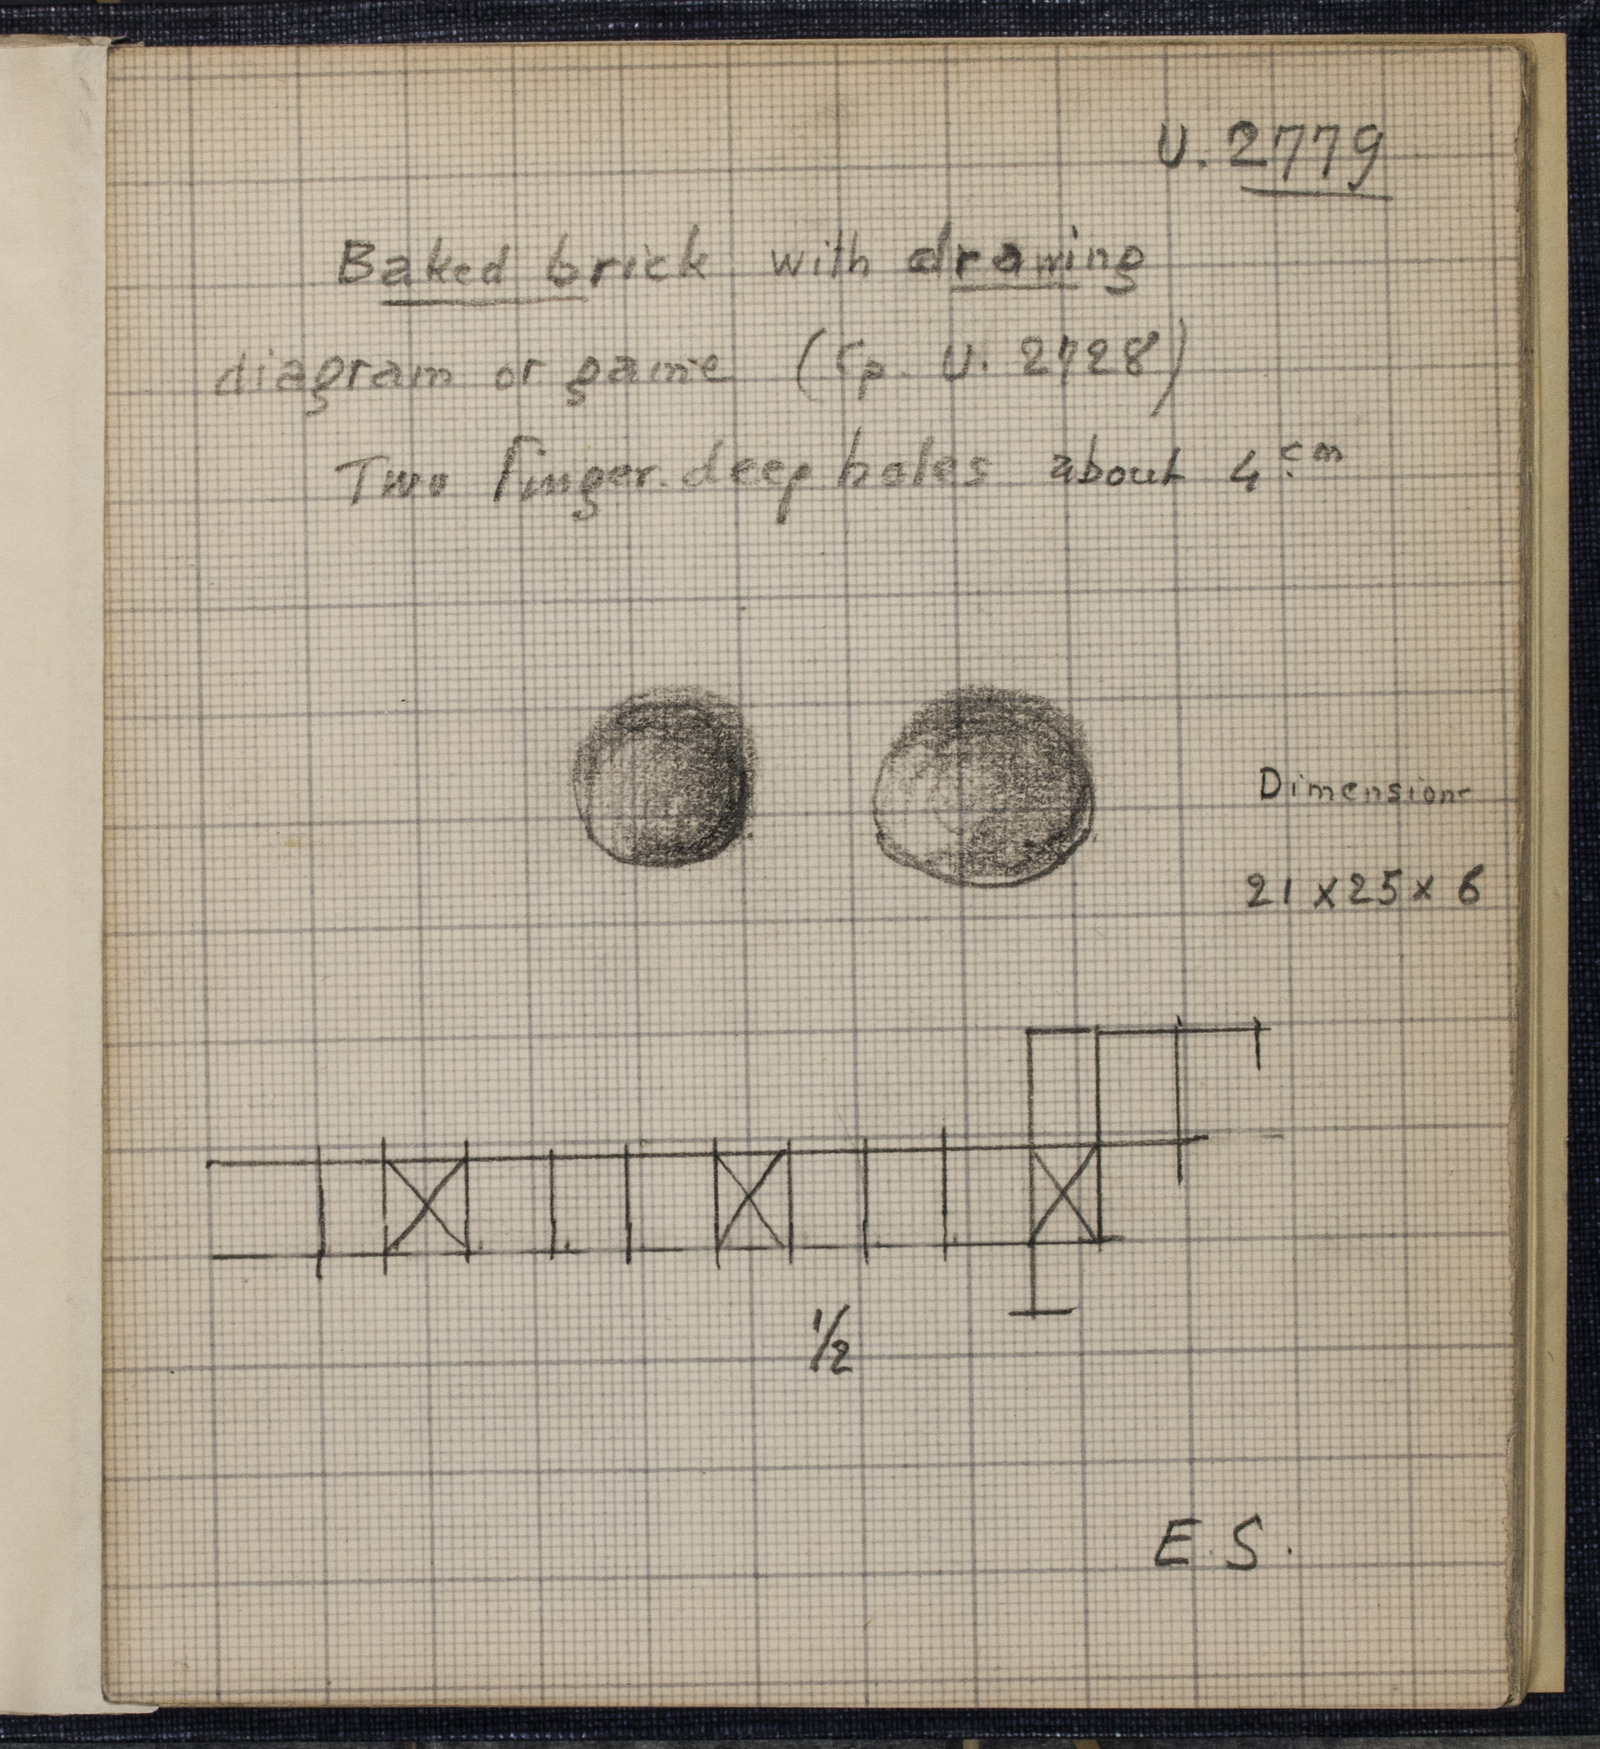 U. 2779
Baked brick with drawing
diagram or game (Cp. U. 2728)
Two finger deep holes about 4 cm
Dimensions
21 x 25 x 6
1/2
E. S.